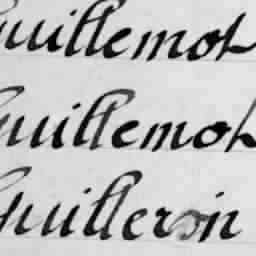 Guillemot
Guillemot
Guilleron